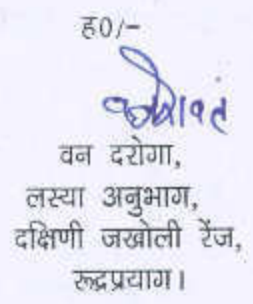 ह०/-
वन दरोगा,
लस्या अनुभाग,
दक्षिणी जखोली रेंज,
रूद्रप्रयाग।